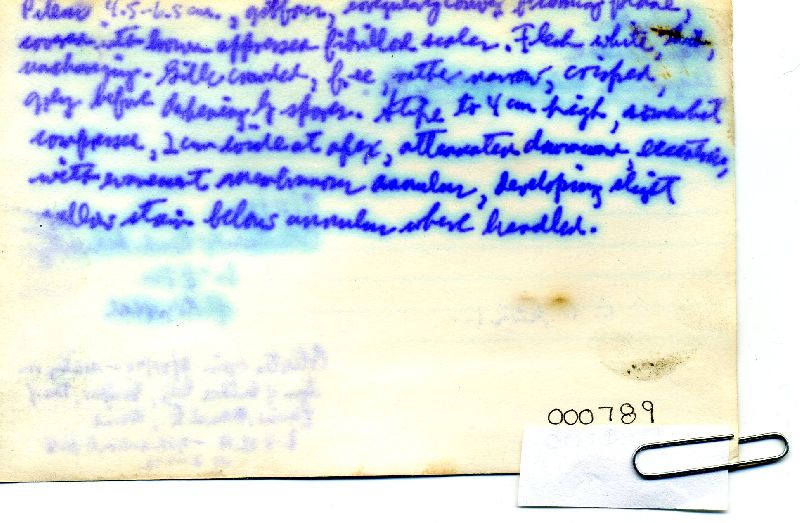 Pileus 4.5-6.5 cm., gibbous, irregularly convex becoming plane,
covered with brown appressed fibrillose scales. Flesh white,
unchanging. Gills crowded, free, rather narrow, crisped,
grey before darkening by spores. Stipe to 4 cm high, somewhat
compressed, 1 cm wide at apex, attenuated downward, eccentric,
with evanescent membranous annulus, developing slight
yellow stain below annulus where handled.
000789